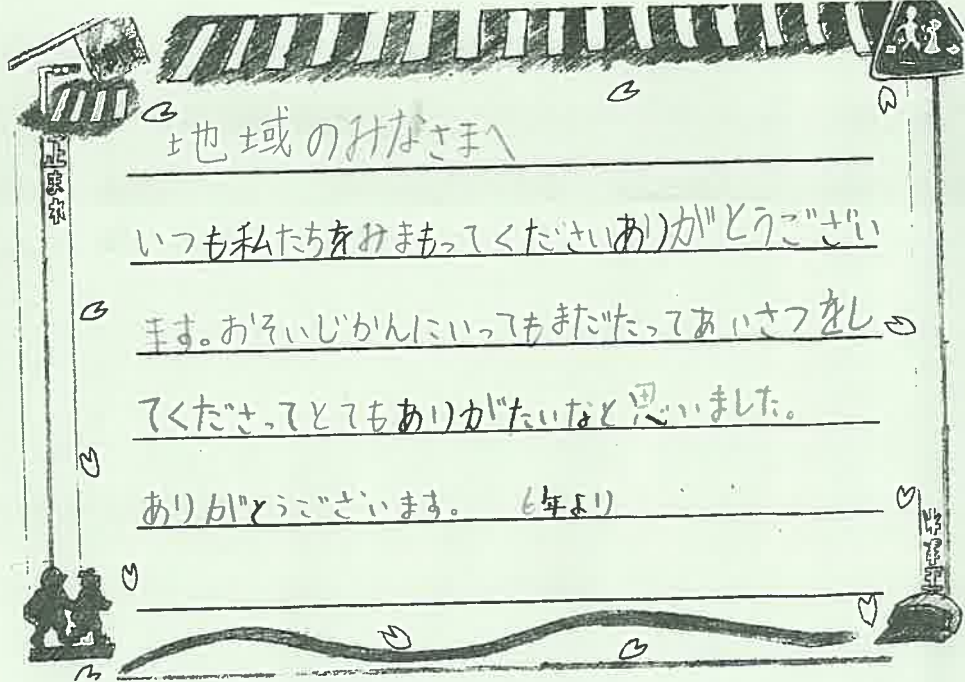 地域のみなさまへ
いつも私たちをみまもってくださいありがとうござい
ます。おそいじかんにいってもまだたってあいさつをし
てくださってとてもありがたいなと思いました。
ありがとうございます。 6年より
止まれ